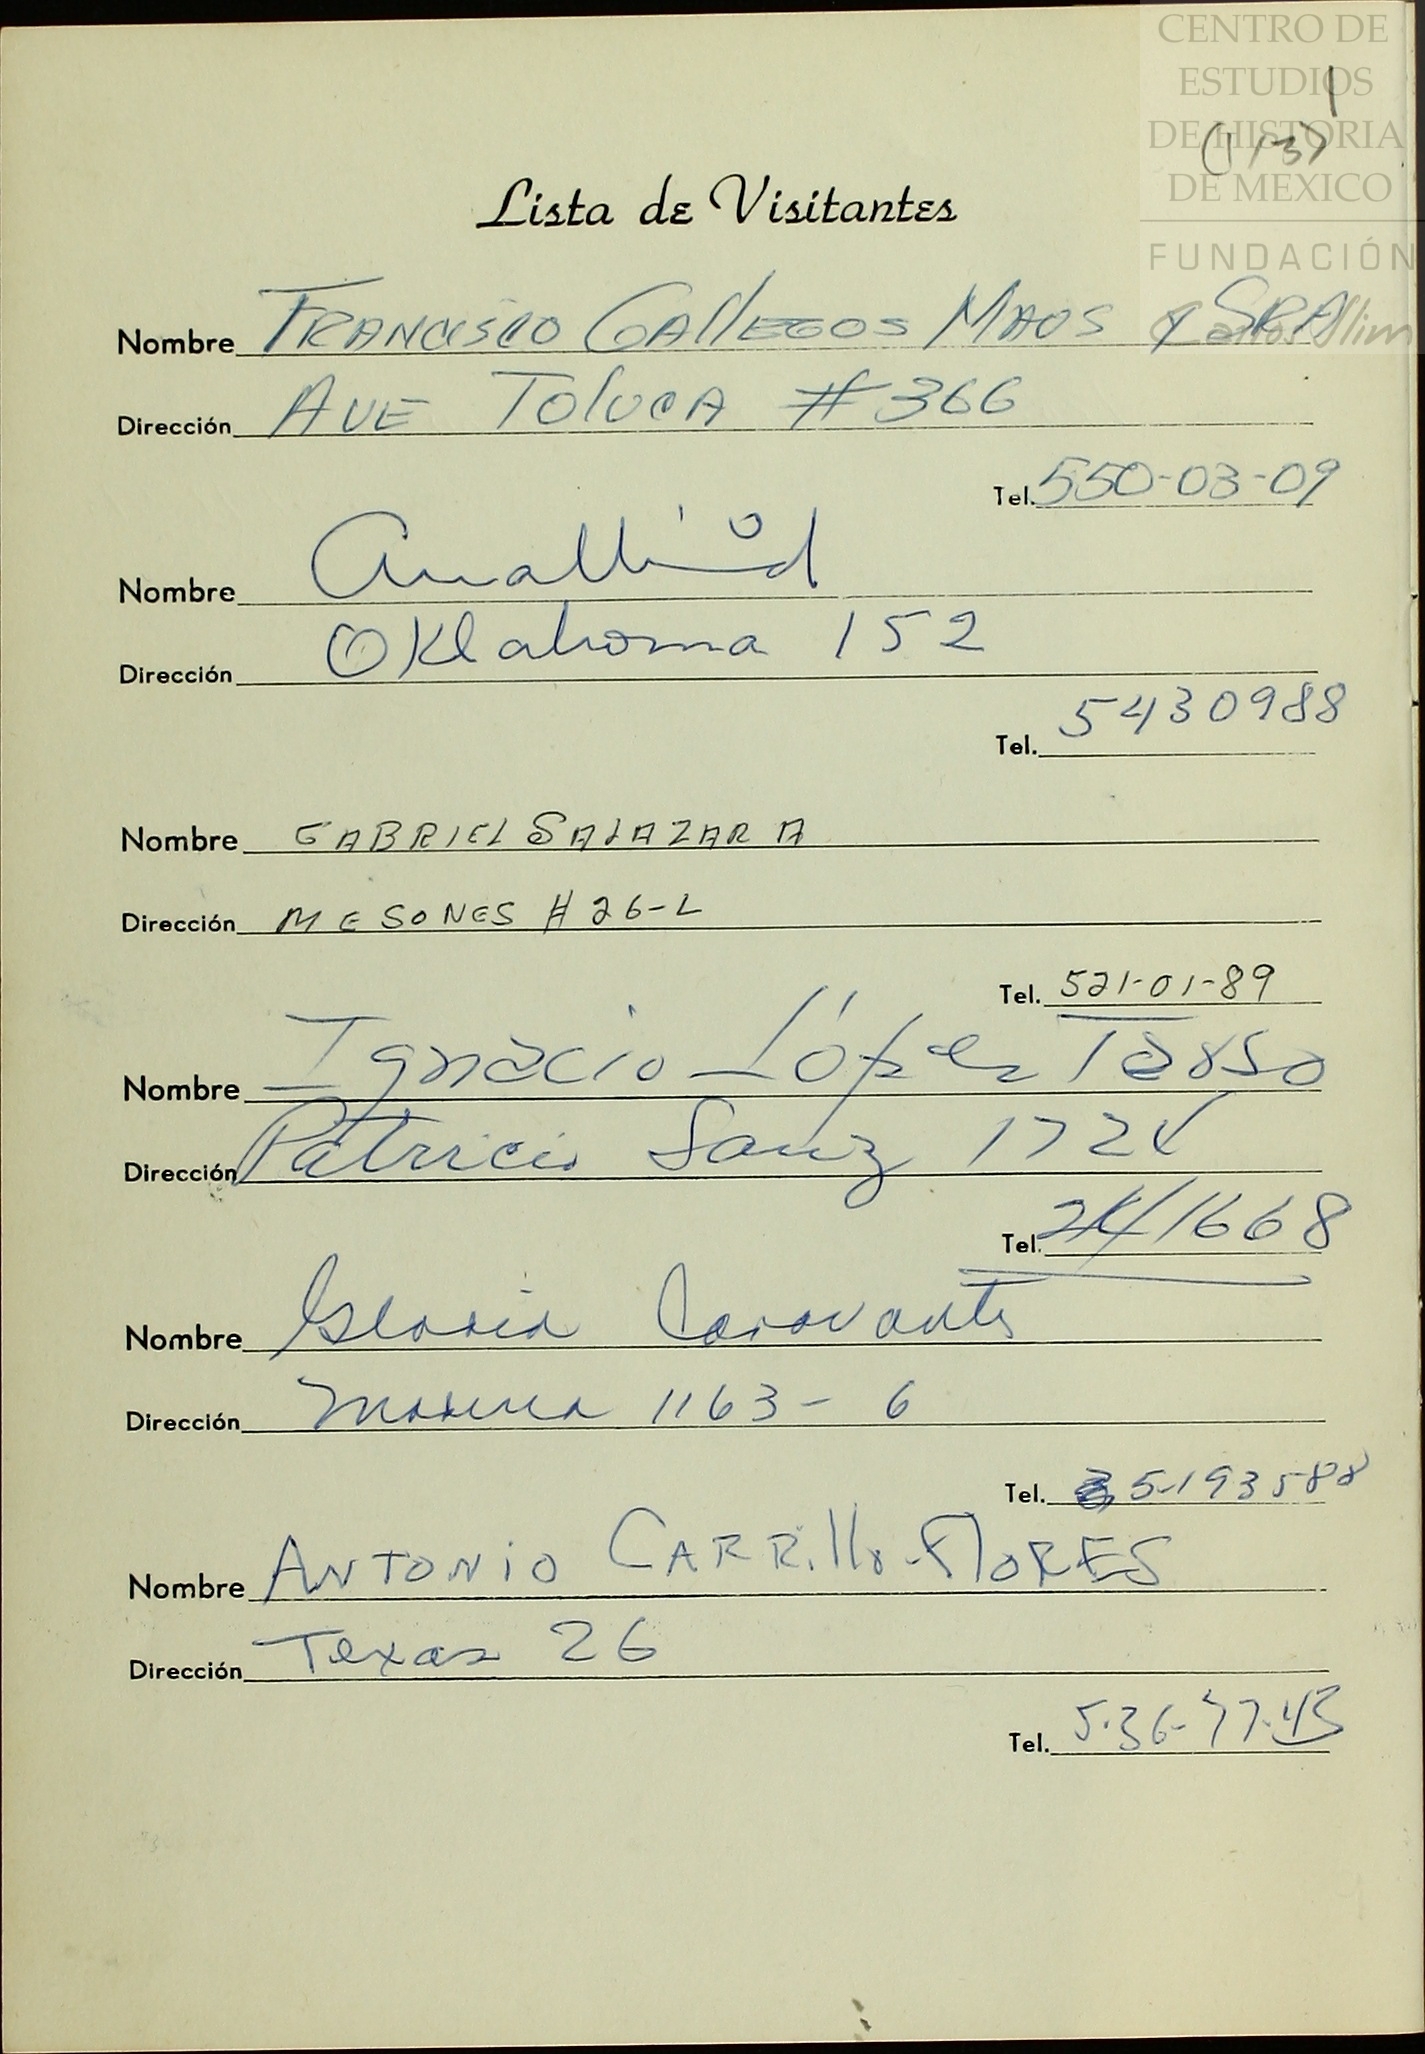 CENTRO DE
ESTUDIOS
DE HISTORIA
DE MEXICO
FUNDACIÓN
Carlos Slim
Lista de Visitantes
Nombre FRANCISCO GALLEGOS y SRA
Dirección AVE TOLUCA # 366
Tel. 550-03-09
Nombre
Dirección Oklahoma 152
Tel. 5430988
Nombre GABRIEL SALAZAR A
Dirección MESONES # 26-L
Tel. 521-01-89
Nombre Ignacio López Tarso
Dirección Patricio Sanz
Tel.
Nombre Gloria Caravantes
Dirección 1163-6
Tel. 5-193588
Nombre ANTONIO CARRILLO FLORES
Dirección Texas 26
Tel. 5-36-77-43